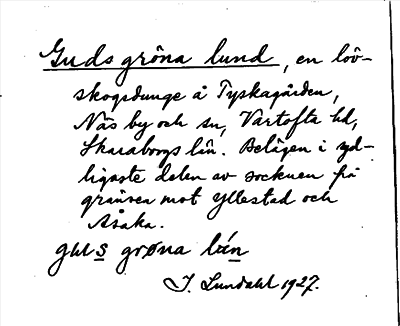 Guds gröna lund, en löv-
skogsdunge å Tyskagården,
Näs by och sn, Vartofta hd,
Skaraborgs län. Belägen i syd-
ligaste delen av socknen på
gränsen mot Yllestad och
Åsaka.
gus grøna lún
J. Lundahl 1927.